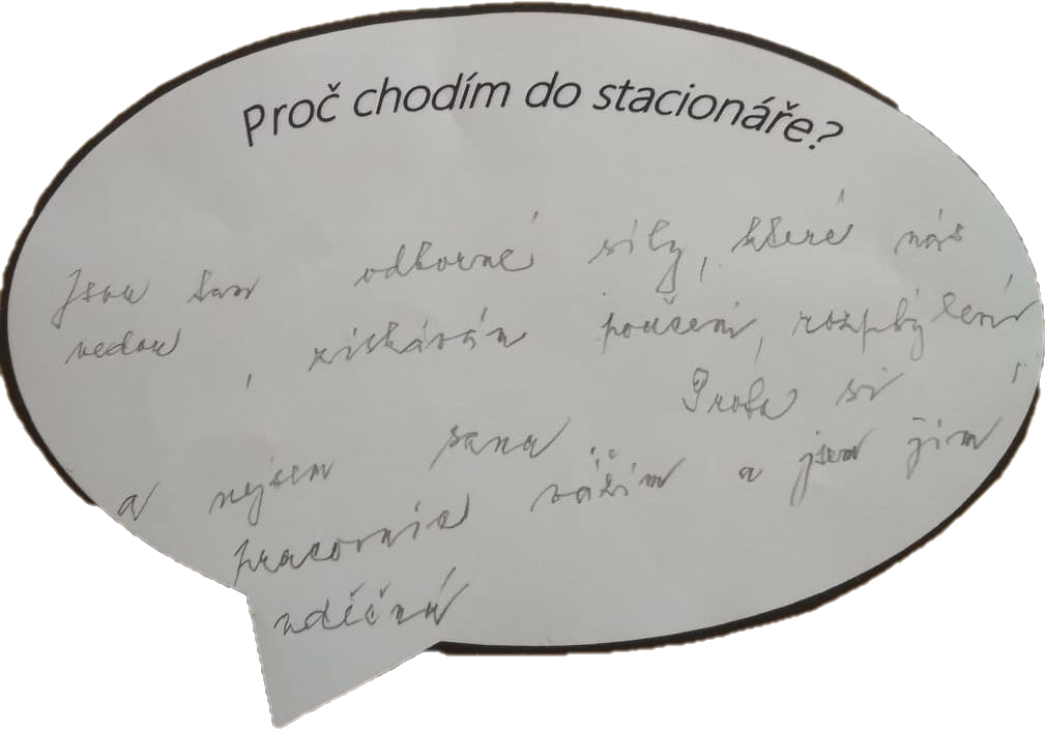 Proč chodím do stacionáře?
Jsou tam odborné síly, které nás
vedou, získávám poučení, rozptýlení
a nejsem sama Proto si
pracovnic vážím a jsem jim
vděčná